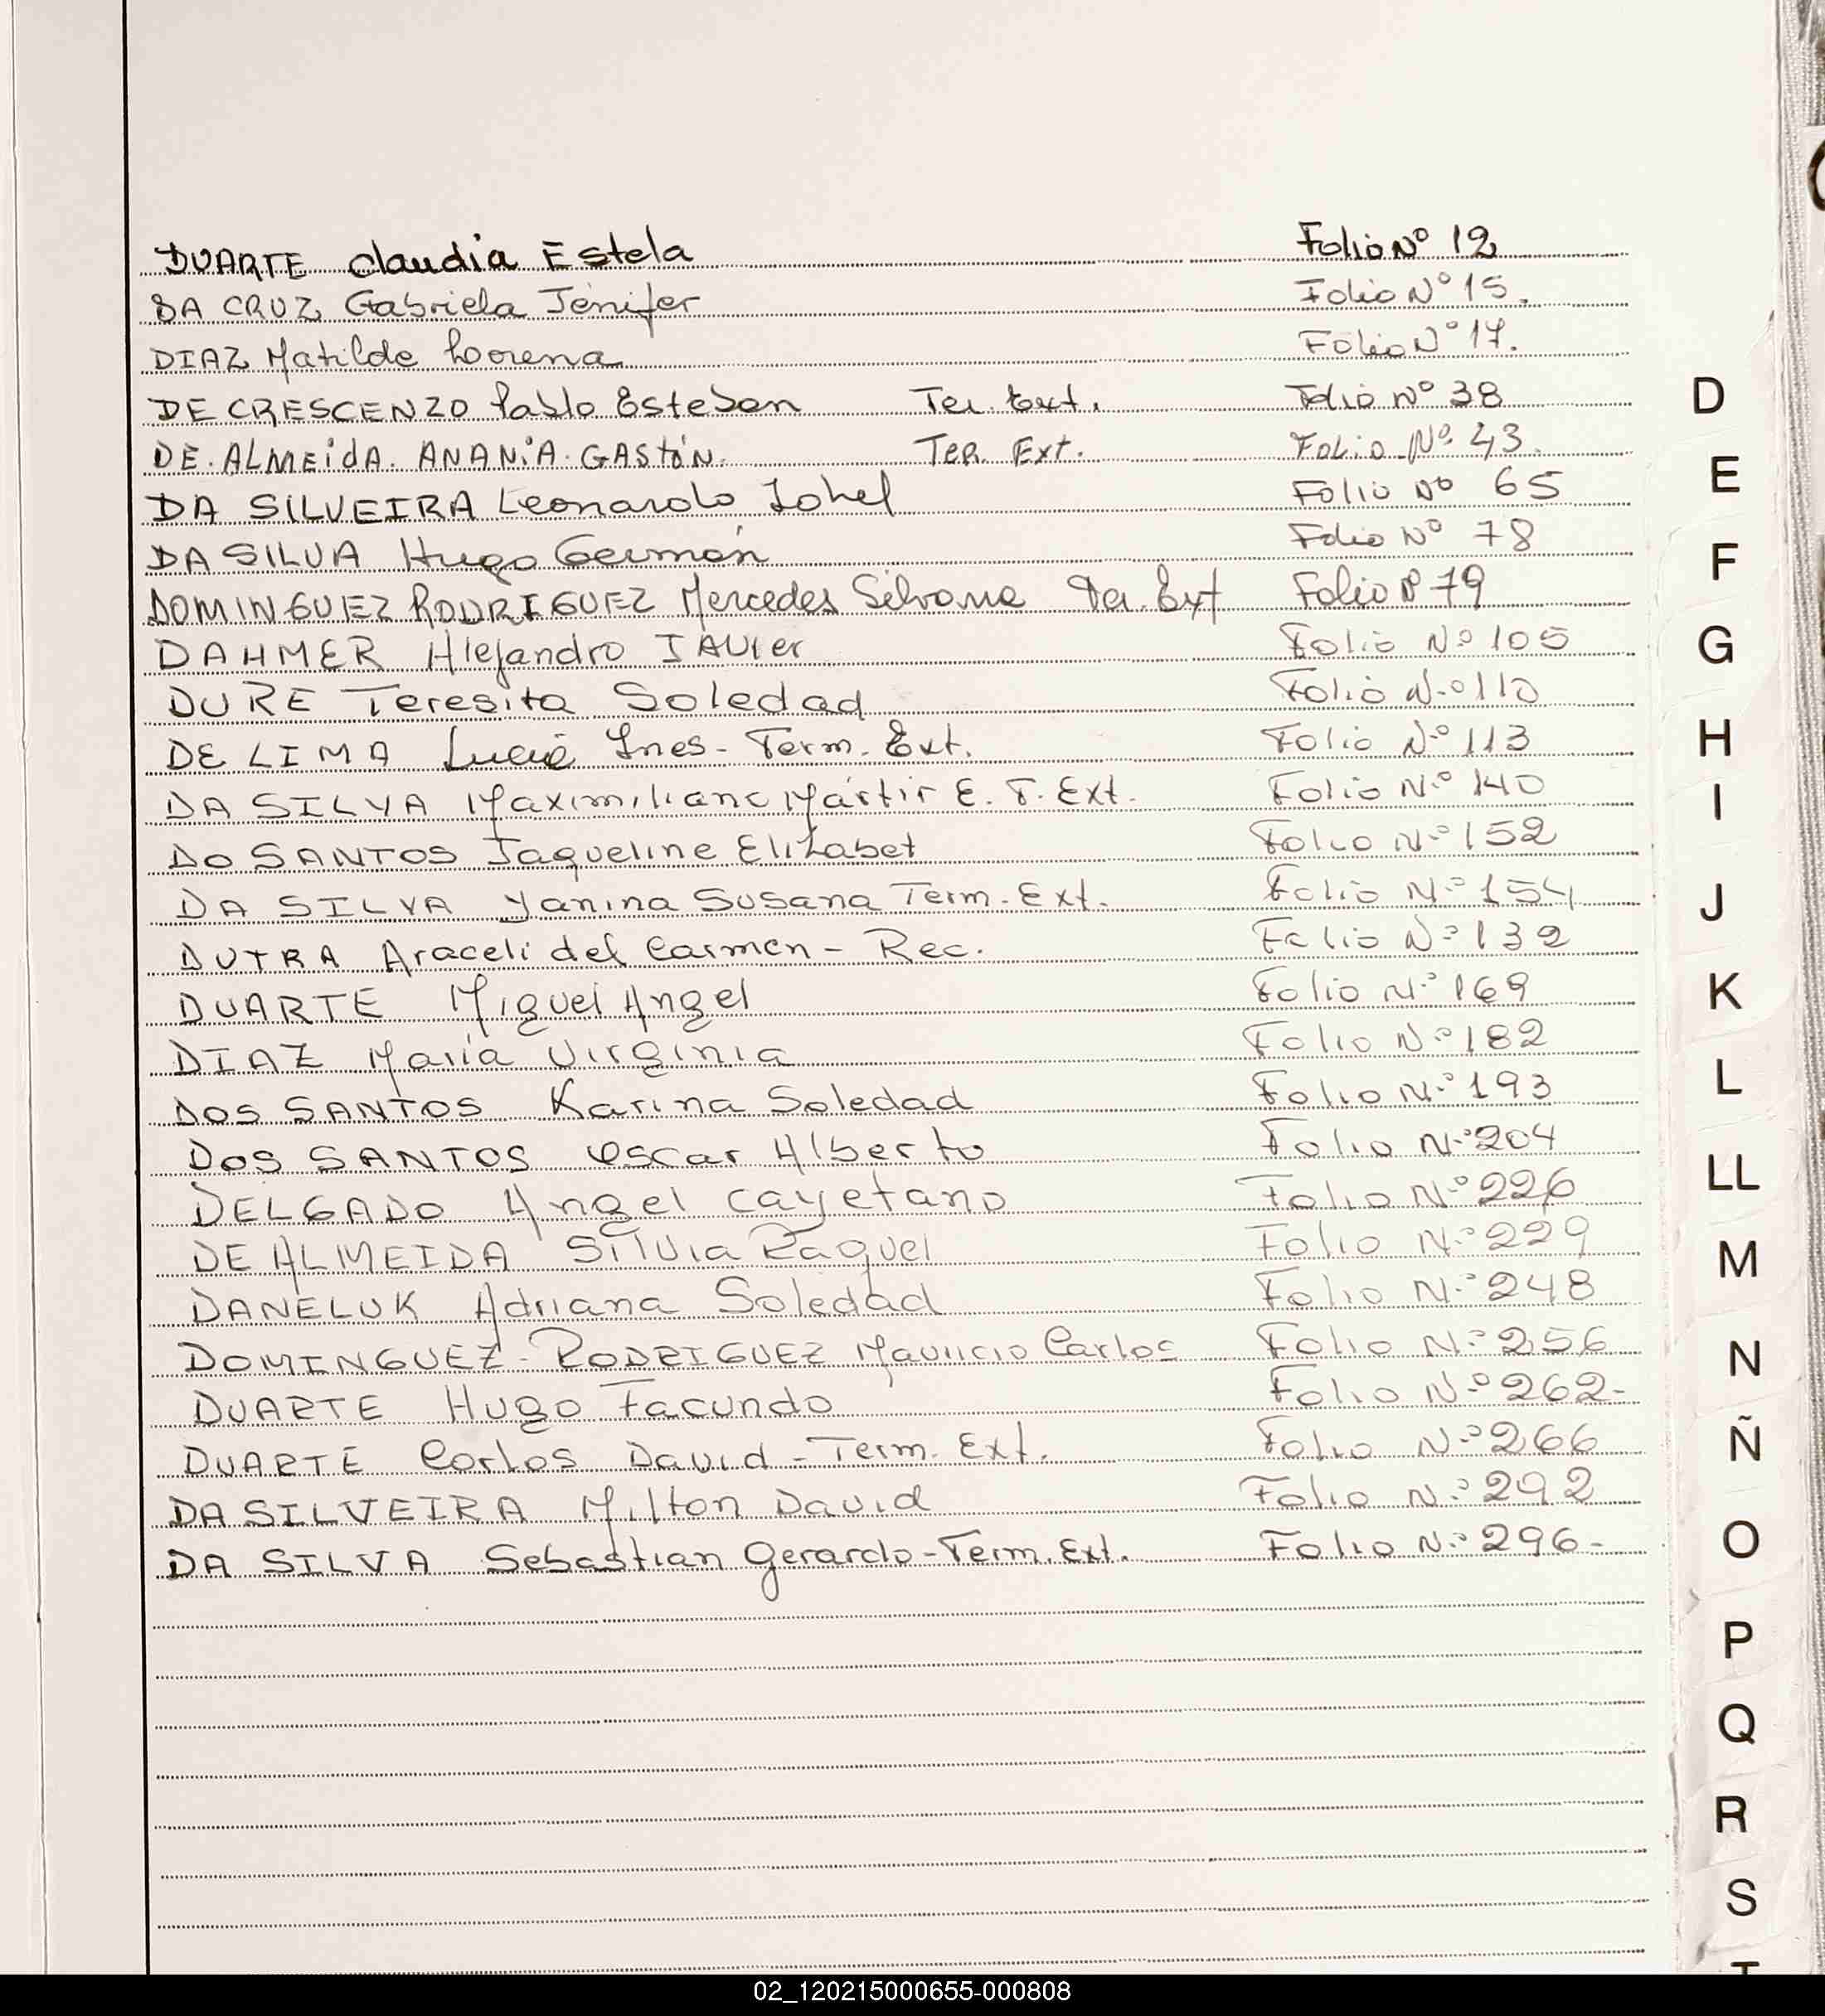 DUARTE Claudia Estela Folio Nº 12
DA CRUZ Gabriela Jénifer Folio Nº 15.
DIAZ Matilde Lorena Folio Nº 17.
DE CRESCENZO Pablo Esteban Ter. Ext. Folio Nº 38
DE ALMEIDA ANANIA GASTÓN. Ter. Ext. Folio Nº 43.
DA SILVEIRA Leonardo Johel Folio Nº 65
DA SILVA Hugo Germán Folio Nº 78
DOMINGUEZ RODRIGUEZ Mercedes Silvana Ter. Ext Folio Nº 79
DAHMER Alejandro JAVIer Folio Nº 105
DURE Teresita Soledad Folio Nº 110
DE LIMA Lucia Ines - Term. Ext. Folio Nº 113
DA SILVA Maximiliano Martir E. T. Ext. Folio Nº 140
DO SANTOS Jaqueline Elizabet Folio Nº 152
DA SILVA Yanina Susana Term. Ext. Folio Nº 154
DUTRA Araceli del Carmen - Rec. Folio Nº 132
DUARTE Miguel Angel Folio Nº 169
DIAZ María Virginia Folio Nº 182
DOS SANTOS Karina Soledad Folio Nº 193
DOS SANTOS Oscar Alberto Folio Nº 204
DELGADO Angel Cayetano Folio Nº 226
DE ALMEIDA Silvia Raquel Folio Nº 229
DANELUK Adriana Soledad Folio Nº 248
DOMINGUEZ - RODRIGUEZ Mauricio Carlos Folio Nº 256
DUARTE Hugo Facundo Folio Nº 262-
DUARTE Carlos David - Term. Ext. Folio Nº 266
DA SILVEIRA Milton David Folio Nº 292
DA SILVA Sebastian Gerardo - Term. Ext. Folio Nº 296-
D
E
F
G
H
I
J
K
L
LL
M
N
Ñ
O
P
Q
R
S
02_120215000655-000808